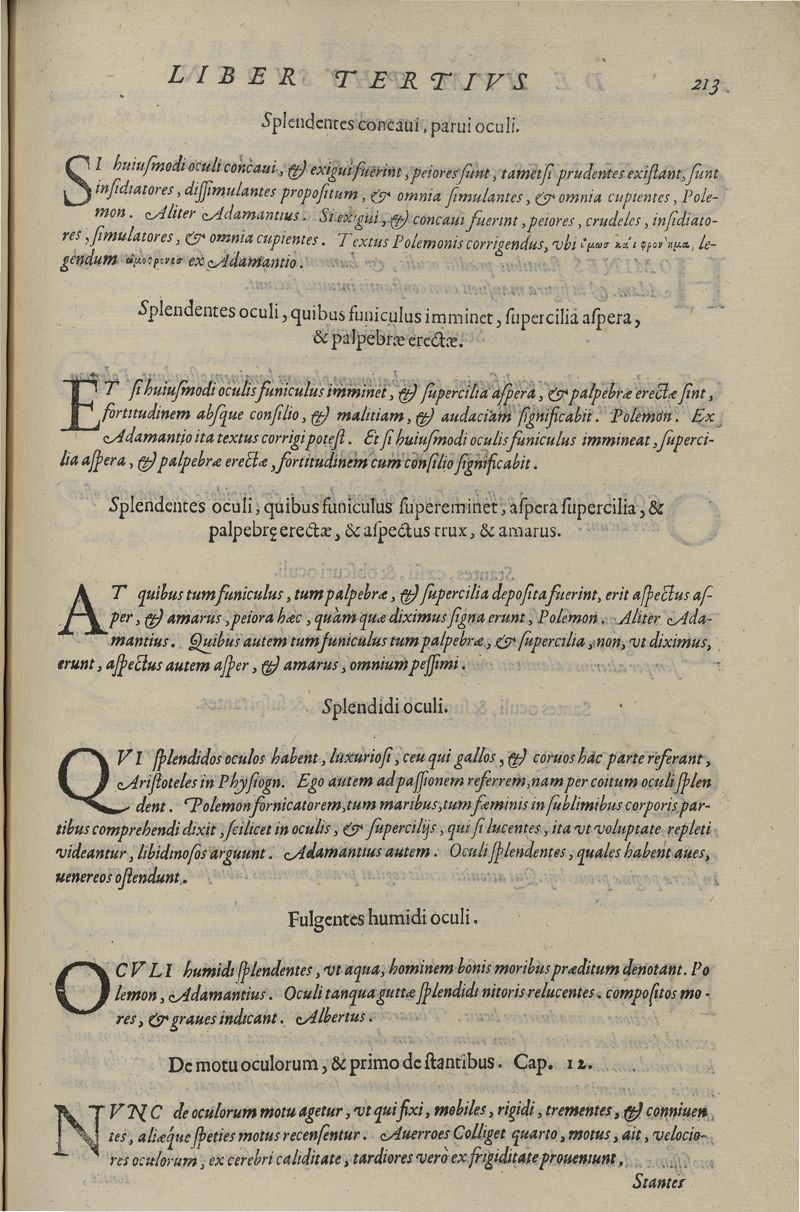 LIBER TERTIVS 213
Splendentes concaui, parui oculi.
SI huiuſmodi oculi concaui, & exigui fuerint, peiores ſunt, tametſi prudentes exiſtant, ſunt
inſidiatores, diſſimulantes propoſitum, & omnia ſimulantes, & omnia cupientes, Pole-
mon. Aliter Adamantius. Si exigui, & concaui fuerint, peiores, crudeles, inſidiato-
res, ſimulatores, & omnia cupientes. Textus Polemonis corrigendus, vbi le-
gendum ex Adamantio.
Splendentes oculi, quibus funiculus imminet, ſupercilia aſpera,
& palpebræ erectæ.
ET ſi huiuſmodi oculis funiculus imminet, & ſupercilia aſpera, & palpebræ erectæ ſint,
fortitudinem abſque conſilio, & malitiam, & audaciam ſignificabit. Polemon. Ex
Adamantio ita textus corrigi poteſt. Et ſi huiuſmodi oculis funiculus immineat, ſuperci-
lia aſpera, & palpebræ erectæ, fortitudinem cum conſilio ſignificabit.
Splendentes oculi, quibus funiculus ſupereminet, aſpera ſupercilia, &
palpebrę erectæ, & aſpectus trux, & amarus.
AT quibus tum funiculus, tum palpebræ, & ſupercilia depoſita fuerint, erit aſpectus aſ-
per, & amarus, peiora hæc, quàm quæ diximus ſigna erunt, Polemon. Aliter Ada-
mantius. Quibus autem tum funiculus tum palpebræ, & ſupercilia, non, vt diximus,
erunt, aſpectus autem aſper, & amarus, omnium peſſimi.
Splendidi oculi.
QVI ſplendidos oculos habent, luxurioſi, ceu qui gallos, & coruos hac parte referant,
Ariſtoteles in Phyſiogn. Ego autem ad paſſionem referrem, nam per coitum oculi ſplen
dent. Polemon fornicatorem, tum maribus, tum fæminis in ſublimibus corporis par-
tibus comprehendi dixit, ſcilicet in oculis, & ſupercilijs, qui ſi lucentes, ita vt voluptate repleti
videantur, libidinoſos arguunt. Adamantius autem. Oculi ſplendentes, quales habent aues,
uenereos oſtendunt.
Fulgentes humidi oculi.
OCVLI humidi ſplendentes, vt aqua, hominem bonis moribus præditum denotant. Po
lemon, Adamantius. Oculi tanqua guttæ ſplendidi nitoris relucentes. compoſitos mo-
res, & graues indicant. Albertus.
De motu oculorum, & primo de ſtantibus. Cap. 12.
NVNC de oculorum motu agetur, vt qui fixi, mobiles, rigidi, trementes, & conniuen
tes, aliæque ſpeties motus recenſentur. Auerroes Colliget quarto, motus, ait, velocio-
res oculorum, ex cerebri caliditate, tardiores verò ex frigiditate proueniunt,
Stantes